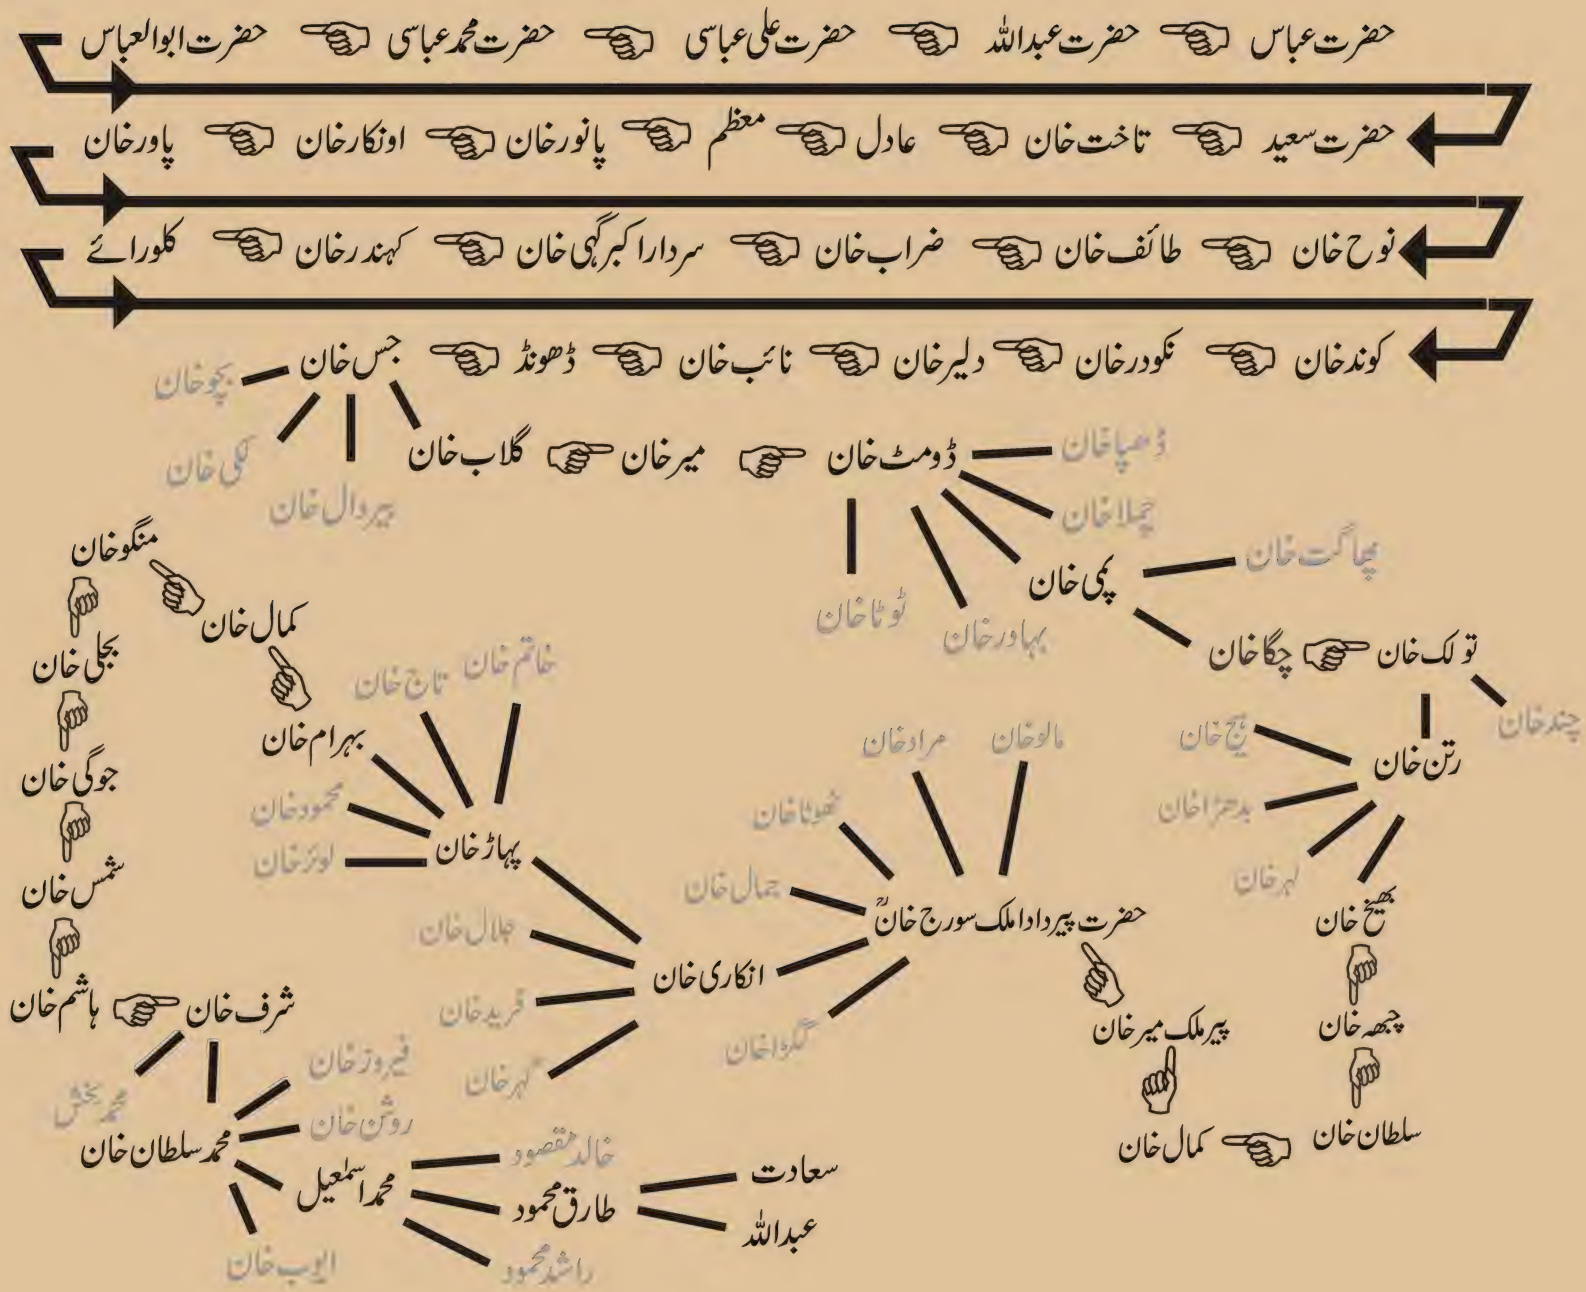 حضرت عباس حضرت عبداللہ حضرت علی عباسی حضرت محمد عباسی حضرت ابوالعباس
حضرت سعید تاخت خان عادل معظم پانور خان اونکار خان پاور خان
نوح خان طائف خان ضراب خان سردار اکبر گہی خان کہندر خان کلورائے
کوند خان نکودر خان دلیر خان نائب خان ڈھونڈ جس خان
بجو خان
لکی خان
پیردال خان
گلاب خان میر خان ڈومٹ خان ڈھپا خان
چملا خان
ٹوٹا خان
بہاور خان
پمی خان
چھاگت خان
چگا خان تولک خان
چند خان
رتن خان
پیچ خان
بدھڑا خان
لہر خان
بھیخ خان
جبھہ خان
سلطان خان کمال خان
پیر ملک میر خان
حضرت پیر دادا ملک سورج خانؒ
مالو خان
مراد خان
ٹھوٹا خان
جمال خان
گکڑا خان
انکاری خان
جلال خان
فرید خان
گہر خان
پہاڑ خان
خاتم خان
تاج خان
محمود خان
لوئر خان
بہرام خان
کمال خان
منگو خان
بجلی خان
جوگی خان
شمس خان
ہاشم خان شرف خان
محمد بخش
محمد سلطان خان
فیروز خان
روشن خان
ایوب خان
محمد اسمٰعیل
خالد مقصود
طارق محمود
راشد محمود
سعادت
عبداللہ